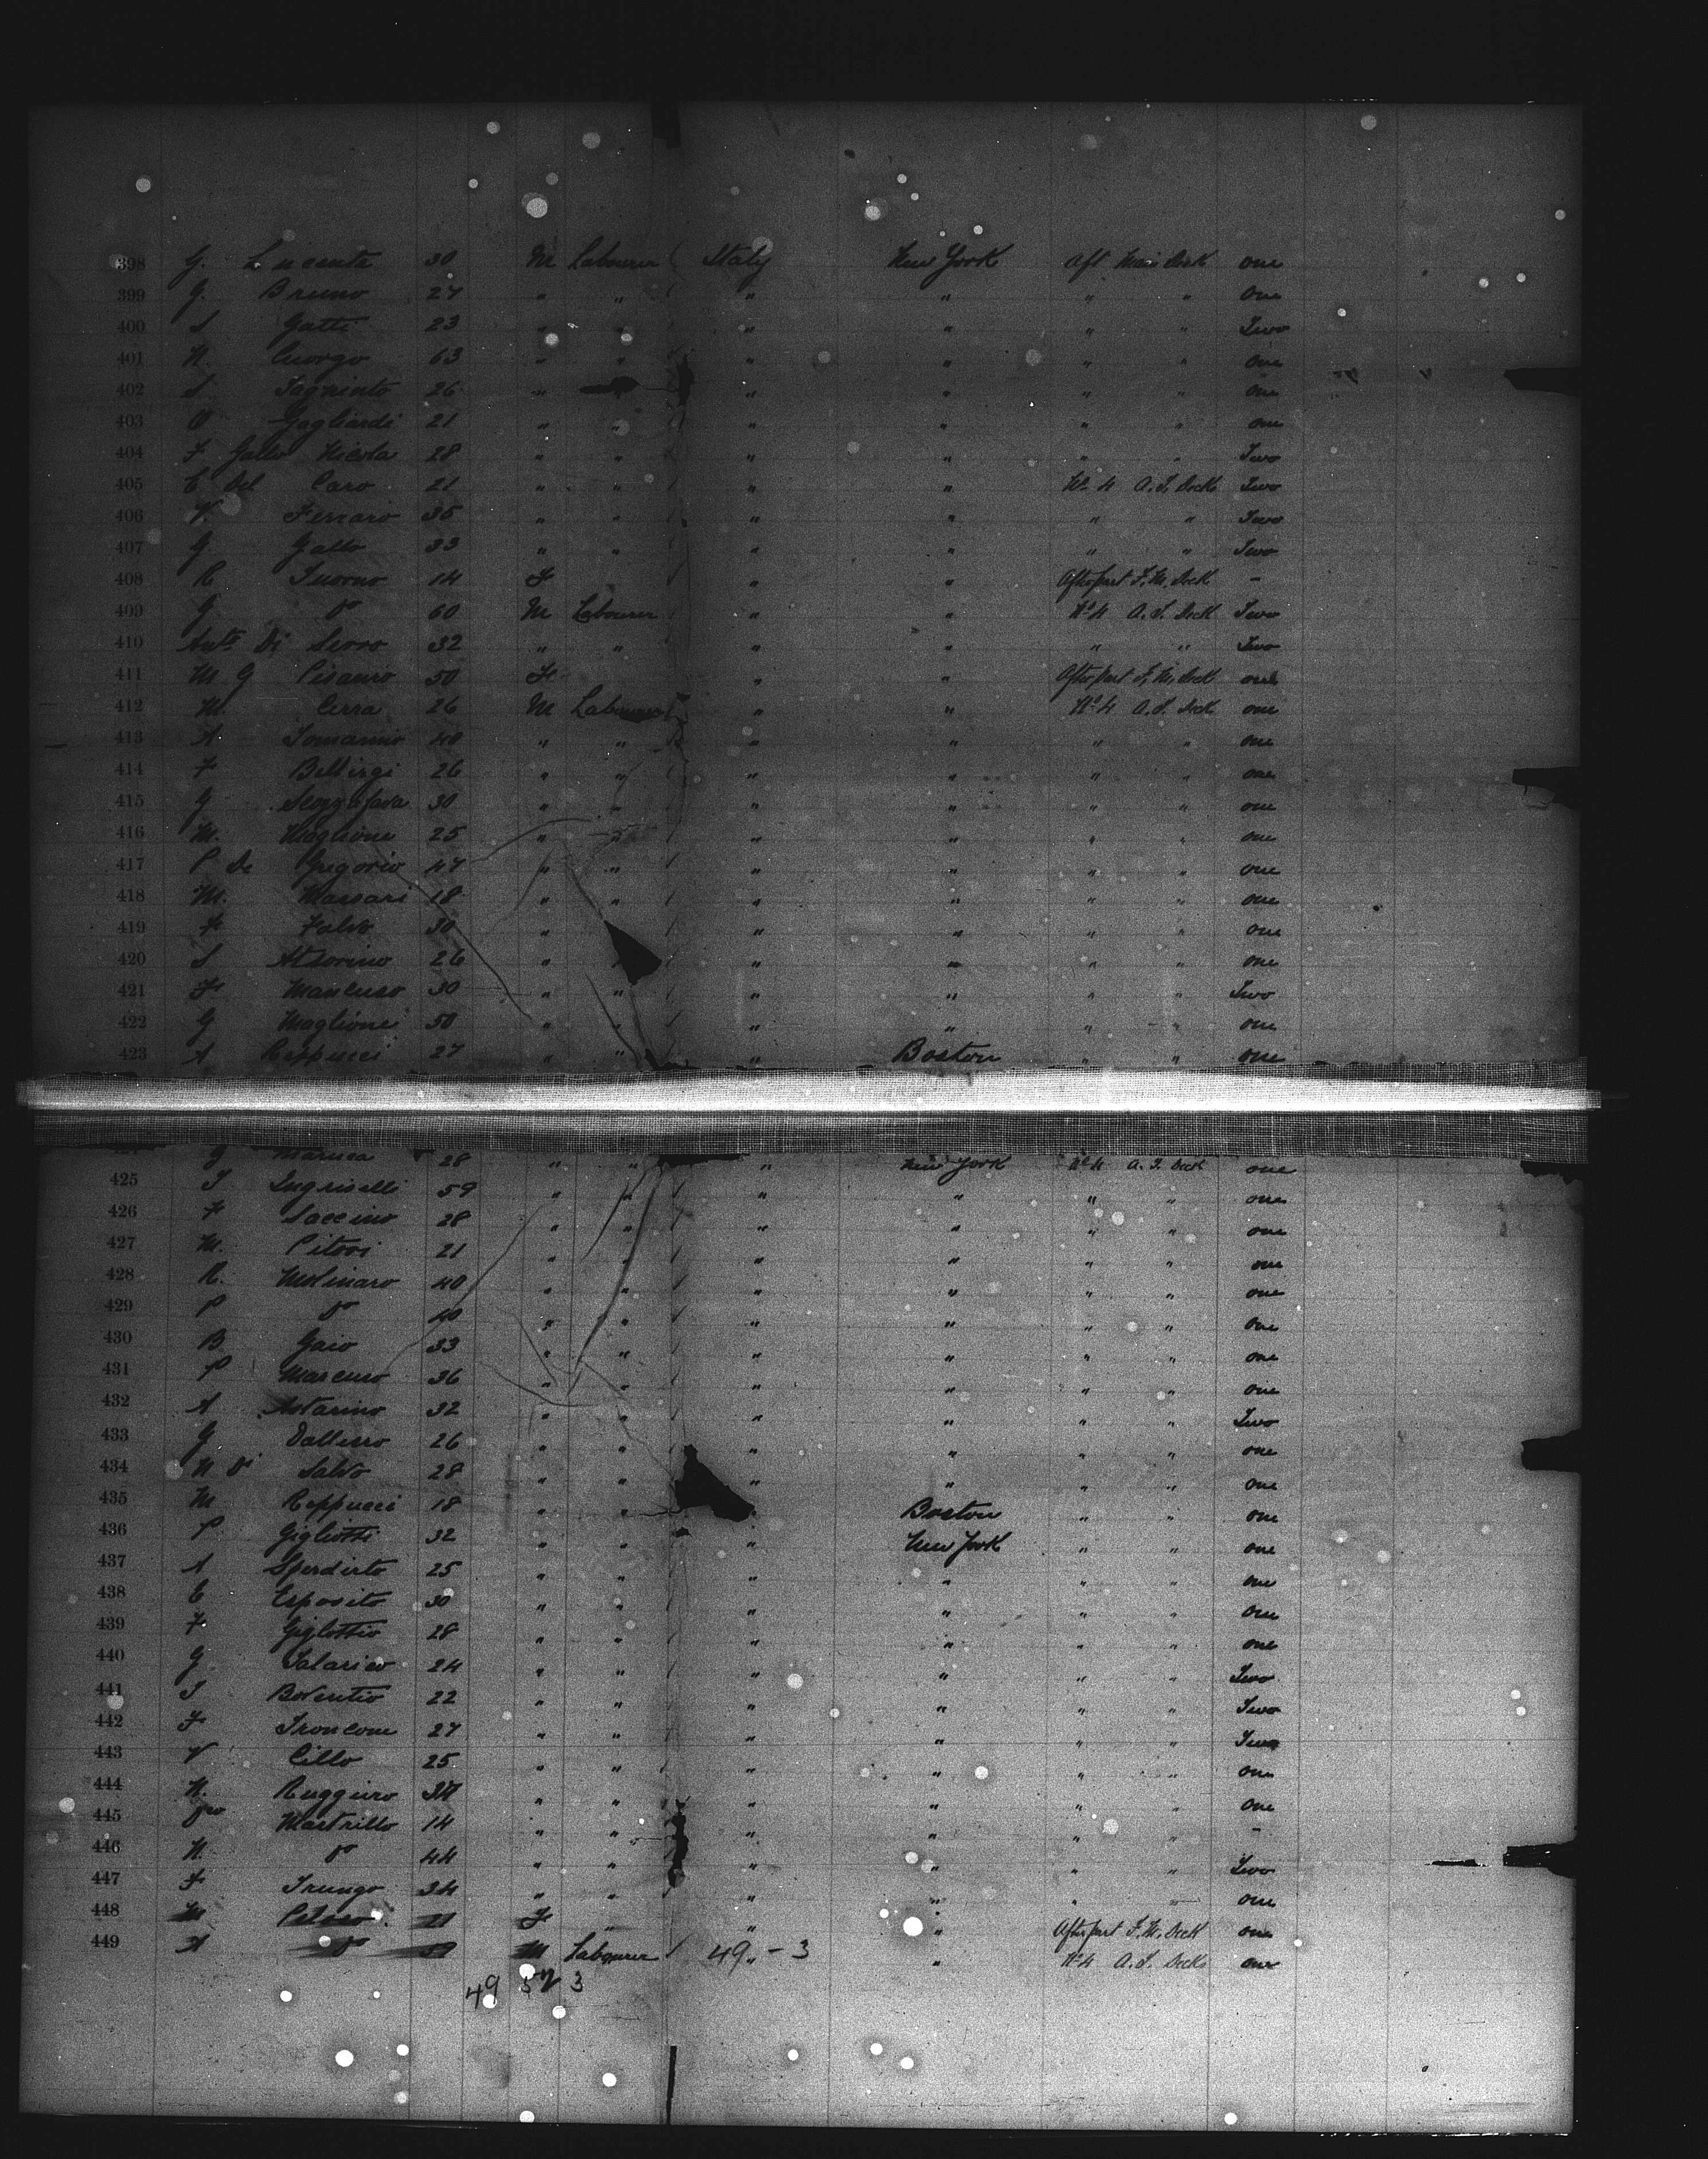 398 G. Lucente 30 M Labourer Italy New York Aft Main Deck one
399 G. Bruno 27 " " " " " " one
400 S Gatti 23 " " " " " " Two
401 N. Cuorgo 63 " " " " " " one
402 S 26 " " " " " one
403 O Gagliardi 21 " " " " " " one
404 F Gallo Nicola 28 " " " " " " Two
405 C Del Caro 21 " " " " No 4 A. S. Deck Two
406 V. Ferraro 35 " " " " " " Two
407 G. Gallo 33 " " " " " " Two
408 R Tuorno 14 F " " After part F. M. Deck -
409 G Do 60 M Labourer " " No 4 A. S. Deck Two
410 Anto Di Serro 32 " " " " " " Two
411 M. G Pisauro 50 F " " After part F. M. Deck one
412 M. Cerra 26 M Labourer " " No 4 A. S. Deck one
413 A Tomaino 40 " " " " " " one
414 F 26 " " " " " " one
415 G Scozzafava 30 " " " " " " one
416 M. Maglione 25 " " " " " " one
417 P De Gregorio 47 " " " " " " one
418 M. Massari 18 " " " " " " one
419 F Falvo 30 " " " " " one
420 S Astorino 26 " " " " " " one
421 F Mancuso 30 " " " " " " Two
422 G Maglione 50 " " " " " " one
423 A Reppucci 27 " " " Boston " " one
G Maruca 28 " " " New York No 4 A. S. Deck one
425 T Ingriselli 59 " " " " " " one
426 F Saccino 28 " " " " " " one
427 M. Pitosi 21 " " " " " " one
428 R. Molinaro 40 " " " " " " one
429 P Do 40 " " " " " " one
430 B Gaio 33 " " " " " " one
431 P Marcuso 36 " " " " " " one
432 A Astarino 32 " " " " " " Two
433 G 26 " " " " " " one
434 N Di Salvo 28 " " " " " " one
435 M Reppucci 18 " " " Boston " " one
436 P Gigliotti 32 " " " New York " " one
437 A Sperduto 25 " " " " " " one
438 E Esposito 30 " " " " " " one
439 F Gigliottio 28 " " " " " " one
440 G Talarico 24 " " " " " " Two
441 T Boventio 22 " " " " " " Two
442 F Troncone 27 " " " " " " Two
443 V Cillo 25 " " " " " " one
444 N. Ruggiero 34 " " " " " " one
445 Mastrillo 14 " " " " " " -
446 N. Do 44 " " " " " " Two
447 F Trungo 34 " " " " " " one
448 M 21 F " " " After part F. M. Deck one
449 A Do M Labourer 49 - 3 " No 4 A. S. Deck one
49 3